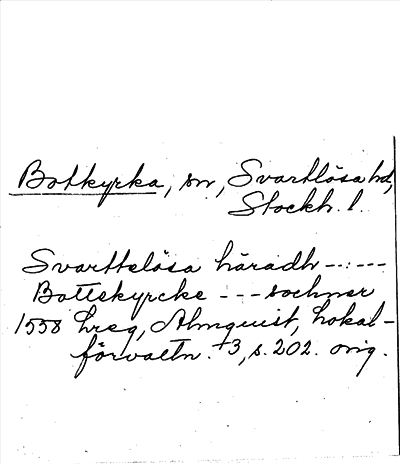 Botkyrka, sn, Svartlösa hd,
Stockh. l.
Svarttelösa häradh -----
Bottekyrcke --- sochner
1558 hreg, Almquist, Lokal-
förvaltn. +3, s. 202. orig.